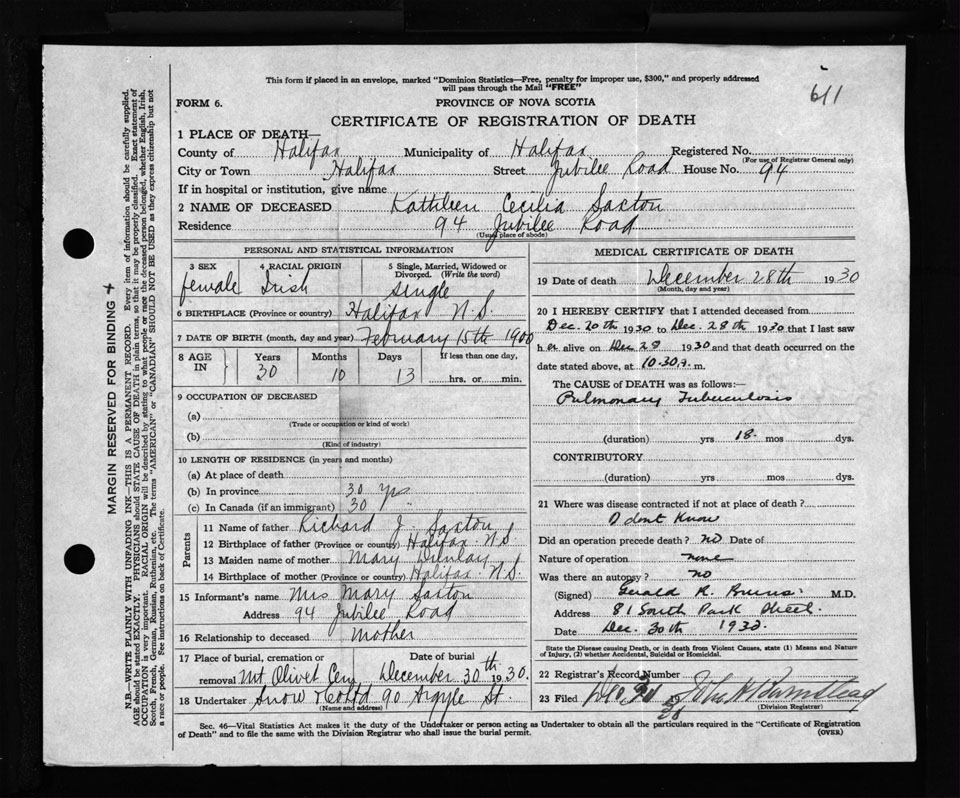 611
This form if placed in an envelope, marked "Dominion Statistics—Free, penalty for improper use, $300," and properly addressed
will pass through the Mail "FREE"
FORM 6.
PROVINCE OF NOVA SCOTIA
CERTIFICATE OF REGISTRATION OF DEATH
1 PLACE OF DEATH—
County of Halifax Municipality of Halifax Registered No.
(For use of Registrar General only)
City or Town Halifax Street Jubilee Road House No. 94
If in hospital or institution, give name
2 NAME OF DECEASED Kathleen Cecilia Saxton
Residence 94 Jubilee Road
(Usual place of abode)
PERSONAL AND STATISTICAL INFORMATION
3 SEX female
4 RACIAL ORIGIN Irish
5 Single, Married, Widowed or Divorced. (Write the word) single
6 BIRTHPLACE (Province or country) Halifax N.S.
7 DATE OF BIRTH (month, day and year) February 15th 1900
8 AGE IN Years 30 Months 10 Days 13 If less than one day, hrs. or min.
9 OCCUPATION OF DECEASED
(a)
(Trade or occupation or kind of work)
(b)
(Kind of industry)
10 LENGTH OF RESIDENCE (in years and months)
(a) At place of death
(b) In province 30 yrs
(c) In Canada (if an immigrant) 30
Parents
11 Name of father Richard J. Saxton
12 Birthplace of father (Province or country) Halifax N.S.
13 Maiden name of mother Mary Dunlay
14 Birthplace of mother (Province or country) Halifax N.S.
15 Informant's name Mrs Mary Saxton
Address 94 Jubilee Road
16 Relationship to deceased Mother
17 Place of burial, cremation or removal Mt Olivet Cem Date of burial December 30th 1930.
18 Undertaker Snow & Co Ltd 90 Argyle St.
(Name and address)
MEDICAL CERTIFICATE OF DEATH
19 Date of death December 28th 1930
(Month, day and year)
20 I HEREBY CERTIFY that I attended deceased from
Dec. 20th 1930 to Dec. 28th 1930 that I last saw
her alive on Dec 28 1930 and that death occurred on the
date stated above, at 10.30 a. m.
The CAUSE of DEATH was as follows:—
Pulmonary Tuberculosis
(duration) yrs 18 mos dys.
CONTRIBUTORY
(duration) yrs mos dys.
21 Where was disease contracted if not at place of death?
I dont Know
Did an operation precede death? no Date of
Nature of operation none
Was there an autopsy? no
(Signed) Gerald R. Burns M.D.
Address 81 South Park Street.
Date Dec. 30th 1930.
State the Disease causing Death, or in death from Violent Causes, state (1) Means and Nature
of Injury, (2) whether Accidental, Suicidal or Homicidal.
22 Registrar's Record Number
23 Filed Dec 30
(Division Registrar)
Sec. 46—Vital Statistics Act makes it the duty of the Undertaker or person acting as Undertaker to obtain all the particulars required in the "Certificate of Registration
of Death" and to file the same with the Division Registrar who shall issue the burial permit.
(OVER)
MARGIN RESERVED FOR BINDING
N.B.—WRITE PLAINLY WITH UNFADING INK—THIS IS A PERMANENT RECORD. Every item of information should be carefully supplied.
AGE should be stated EXACTLY. PHYSICIANS should STATE CAUSE OF DEATH in plain terms, so that it may be properly classified. Exact statement of
OCCUPATION is very important. RACIAL ORIGIN will be described by stating to what people or race the deceased person belonged, whether English, Irish,
Scotch, French, German, Russian, Ruthenian, etc. The terms "AMERICAN" or "CANADIAN" SHOULD NOT BE USED as they express citizenship but not
a race or people. See instructions on back of Certificate.